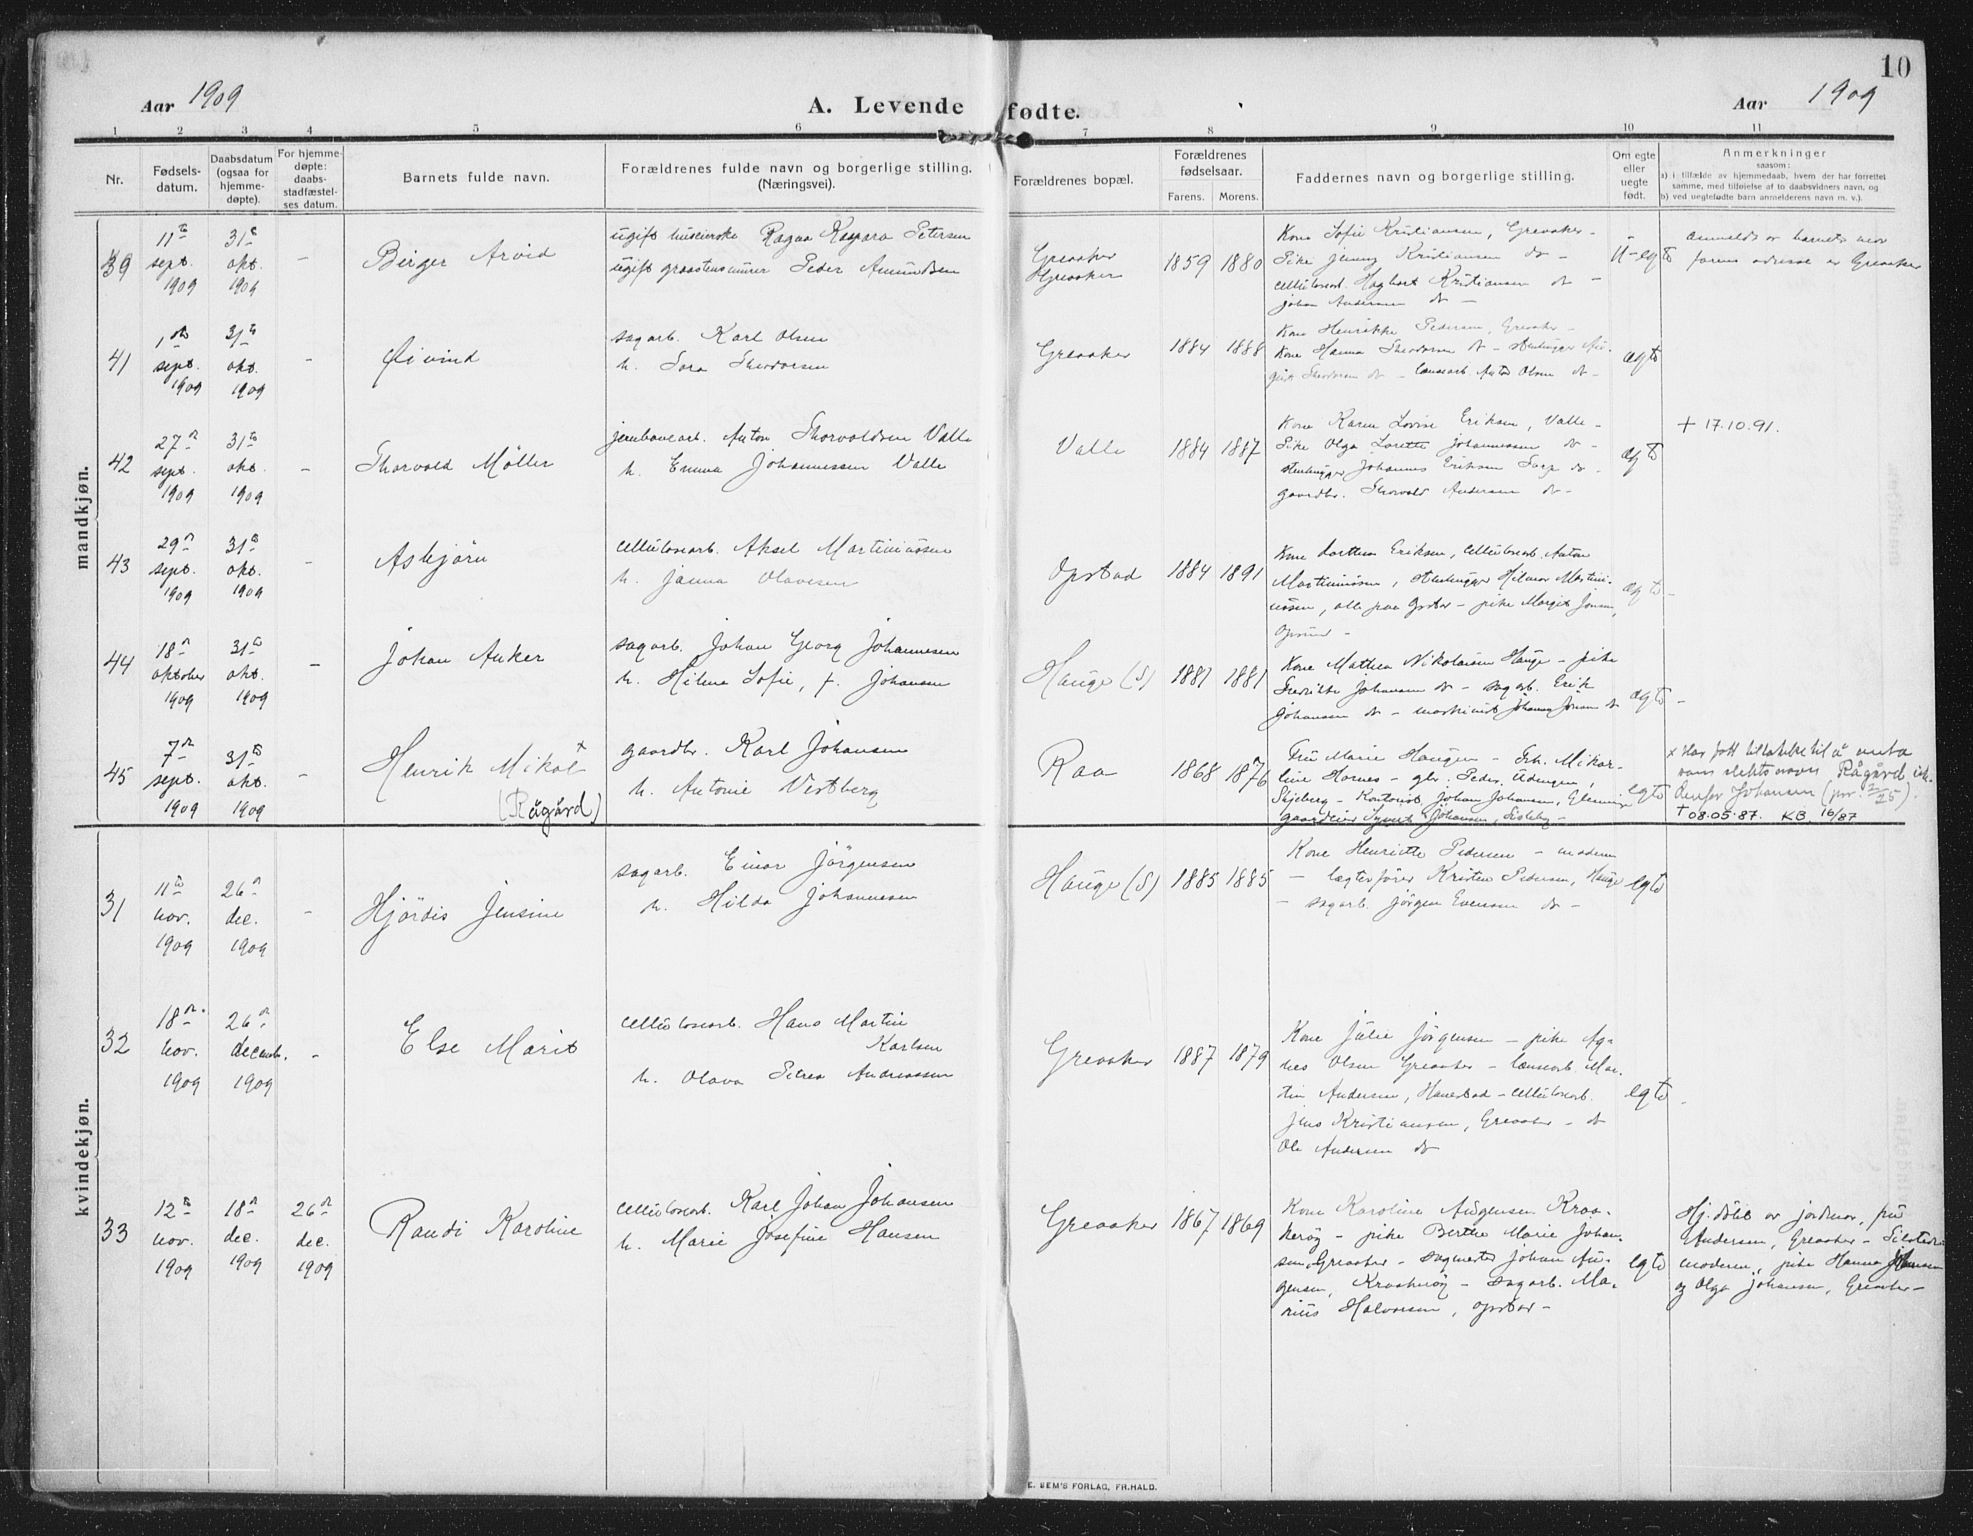 10
Aar 1909
A. Levende fødte.
Aar 1909
1 2 3 4 5 6 7 8 9 10 11
Nr.
Fødsels-
datum.
Daabsdatum
(ogsaa for
hjemme-
døpte).
For hjemme-
døpte:
daabs-
stadfæstel-
ses datum.
Barnets fulde navn.
Forældrenes fulde navn og borgerlige stilling.
(Næringsvei).
Forældrenes bopæl.
Forældrenes
fødselsaar.
Farens. Morens.
Faddernes navn og borgerlige stilling.
Om egte
eller
uegte
født.
Anmerkninger
saasom:
a) i tilfælde av hjemmedaab, hvem der har forrettet
samme, med tilføielse af to daabsvidners navn, og
b) ved uegtefødte barn anmelderens navn m. v.).
mandkjøn.
39
11te sept. 1909
31te okt. 1909
-
Birger Arvid
ugift huseierske Ragna Kaspara Petersen
ugift graastensmurer Peder Amundsen
Greaaker
Greaaker
1859 1880
Kone Sofie Kristiansen, Greaaker -
Pike Jenny Kristiansen do -
cellulosearb. Hagbart Kristiansen do -
Johan Andersen do -
U-egte
anmeldt av barnets mor
farens adresse er Greaaker
41
1ste sept. 1909
31te okt. 1909
-
Øivind
sagarb. Karl Olsen
h. Sara Theodorsen
Greaaker
1884 1888
Kone Henrikke Pedersen, Greaaker -
Kone Hanna Theodorsen do - stenhugger
Theodorsen do - lænsearb. Anton Olsen do -
egte
42
27de sept. 1909
31te okt. 1909
-
Thorvald Möller
jernbanearb. Anton Thorvaldsen Valle
h. Emma Johannessen Valle
Valle
1884 1887
Kone Karen Lovise Eriksen, Valle -
Pike Olga Lorette Johannessen do -
stenhugger Johannes Eriksen Sarp do -
gaardbr. Thorvald Andersen do -
egte
+ 17.10.91.
43
29de sept. 1909
31te okt. 1909
-
Asbjörn
cellulosearb. Aksel Martiniussen
h. Janna Olavesen
Opstad
1884 1891
Kone Lorthea Eriksen, cellulosearb. Anton
Martiniussen, stenhugger Hilmar Martini-
ussen, alle paa Opstad - pike Margit Jensen,
Opsund -
egte -
44
18de oktober 1909
31te okt. 1909
-
Johan Anker
sagarb. Johan Georg Johannesen
h. Hilma Sofie, f. Johansen
Hauge (S)
1881 1881
Kone Mathea Nikolaisen Hauge - pike
Fredrikke Johansen do - sagarb. Erik
Johansen do - maskinist Johannes Jensen do
egte -
45
7de sept. 1909
31te okt. 1909
-
Henrik Mikal x
(Rågård)
gaardbr. Karl Johansen
h. Antonie Vestberg
Raa
1868 1876
Fru Marie Haugen - Frk. Mikar-
line Hornes - gbr. Peder Udengen,
Skjeberg - Kontorist Johan Johansen, Glemminge
gaardeier Johansen,
egte
x Har fått tillatelse til å anta
som slektsnavn Rågård istf.
Johansen (pr. 2/2 25).
† 08.05.87. KB. 16/87
kvindekjøn.
31
11te nov. 1909
26de dec. 1909
-
Hjördis Jensine
sagarb. Einar Jörgensen
h. Hilda Johannesen
Hauge (S)
1885 1885
Kone Henriette Pedersen - moderen
- lægterfører Kristen Pedersen, Hauge
- sagarb. Jörgen Evensen do -
egte
32
18de nov. 1909
26de decemb. 1909
-
Else Marit
cellulosearb. Hans Martin
Karlsen
h. Olava Petrea Andreassen
Greaaker
1887 1879
Kone Julie Jörgensen - pike Ag-
nes Olsen Greaaker - lænsearb. Mar-
tin Andersen, Hanestad - cellulosearb.
Jens Kristiansen, Greaaker - do
Ole Andersen do
egte -
33
12te nov. 1909
18de dec. 1909
26de dec. 1909
Randi Karoline
cellulosearb. Karl Johan Johansen
h. Marie Josefine Hansen
Greaaker
1867 1869
Kone Karoline Augensen Kraa-
keröy - pike Berthe Marie Johan-
sen, Greaaker - sagmester Johan Au-
gensen, Kraakeröy - sagarb. Ma-
rius Halvorsen, Opstad -
egte
Hj. döbt av jordmor, fru
Andersen, Greaaker - Tilstede:
moderen, pike Hanna Johansen
og Olga Johansen, Greaaker -
E. SEM'S FORLAG, FR.HALD.